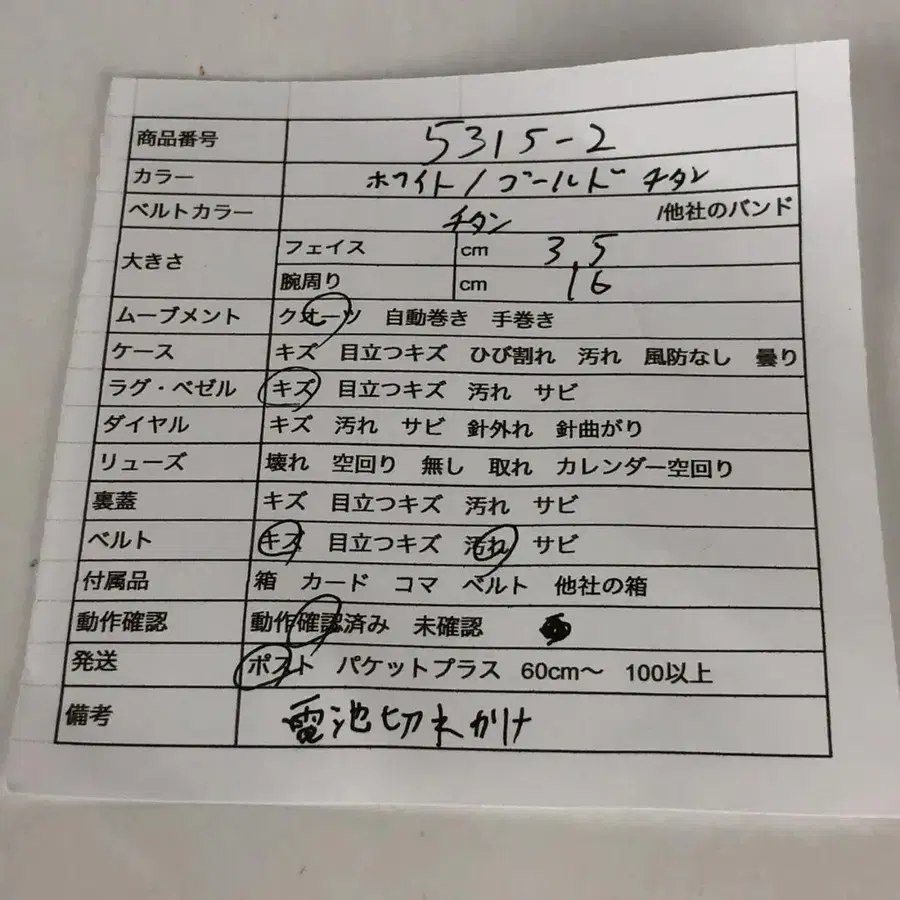 商品番号 5315-2
カラー ホワイト/ゴールド チタン
ベルトカラー チタン /他社のバンド
大きさ フェイス cm 3.5
腕周り cm 16
ムーブメント クオーツ 自動巻き 手巻き
ケース キズ 目立つキズ ひび割れ 汚れ 風防なし 曇り
ラグ・ベゼル キズ 目立つキズ 汚れ サビ
ダイヤル キズ 汚れ サビ 針外れ 針曲がり
リューズ 壊れ 空回り 無し 取れ カレンダー空回り
裏蓋 キズ 目立つキズ 汚れ サビ
ベルト キズ 目立つキズ 汚れ サビ
付属品 箱 カード コマ ベルト 他社の箱
動作確認 動作確認済み 未確認
発送 ポスト パケットプラス 60cm～ 100以上
備考 電池切れかけ